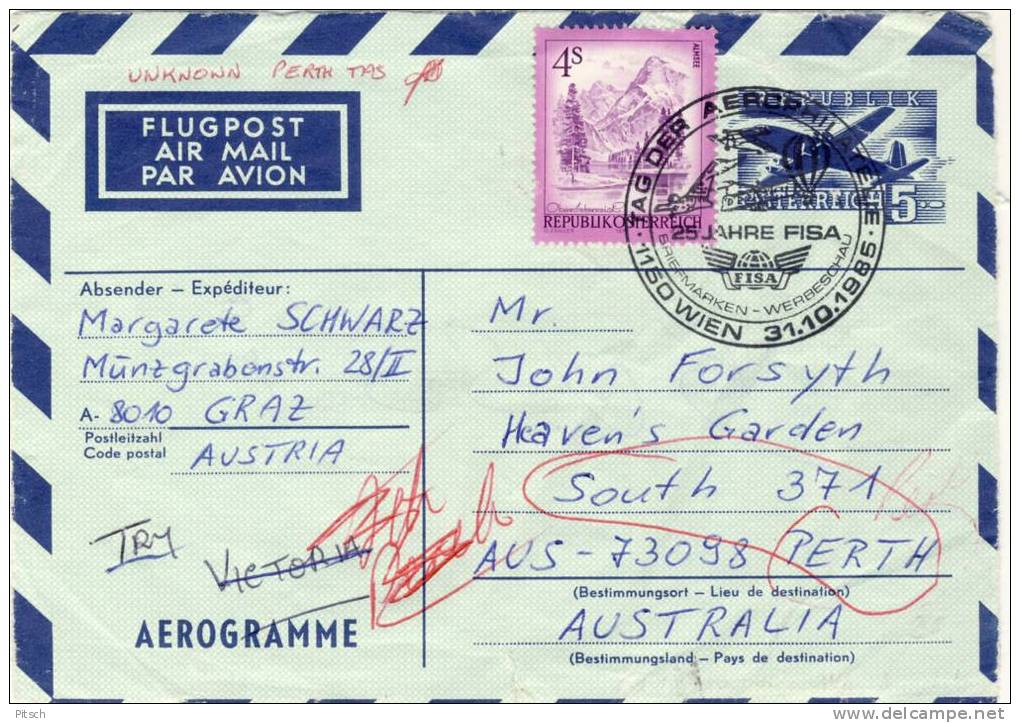 UNKNOWN PERTH TAS
FLUGPOST
AIR MAIL
PAR AVION
4S
ALMSEE
REPUBLIK ÖSTERREICH
REPUBLIK
ÖSTERREICH 5
TAG DER AEROPHILATELIE
25 JAHRE FISA
FISA
BRIEFMARKEN - WERBESCHAU
1150 WIEN 31.10.1985
Absender – Expéditeur:
Margarete SCHWARZ
Münzgrabenstr. 28/II
A- 8010 GRAZ
Postleitzahl
Code postal
AUSTRIA
Mr.
John Forsyth
Heaven's Garden
South 371
AUS - 73098 PERTH
(Bestimmungsort – Lieu de destination)
AUSTRALIA
(Bestimmungsland – Pays de destination)
TRY
VICTORIA
AEROGRAMME
Pitsch
www.delcampe.net